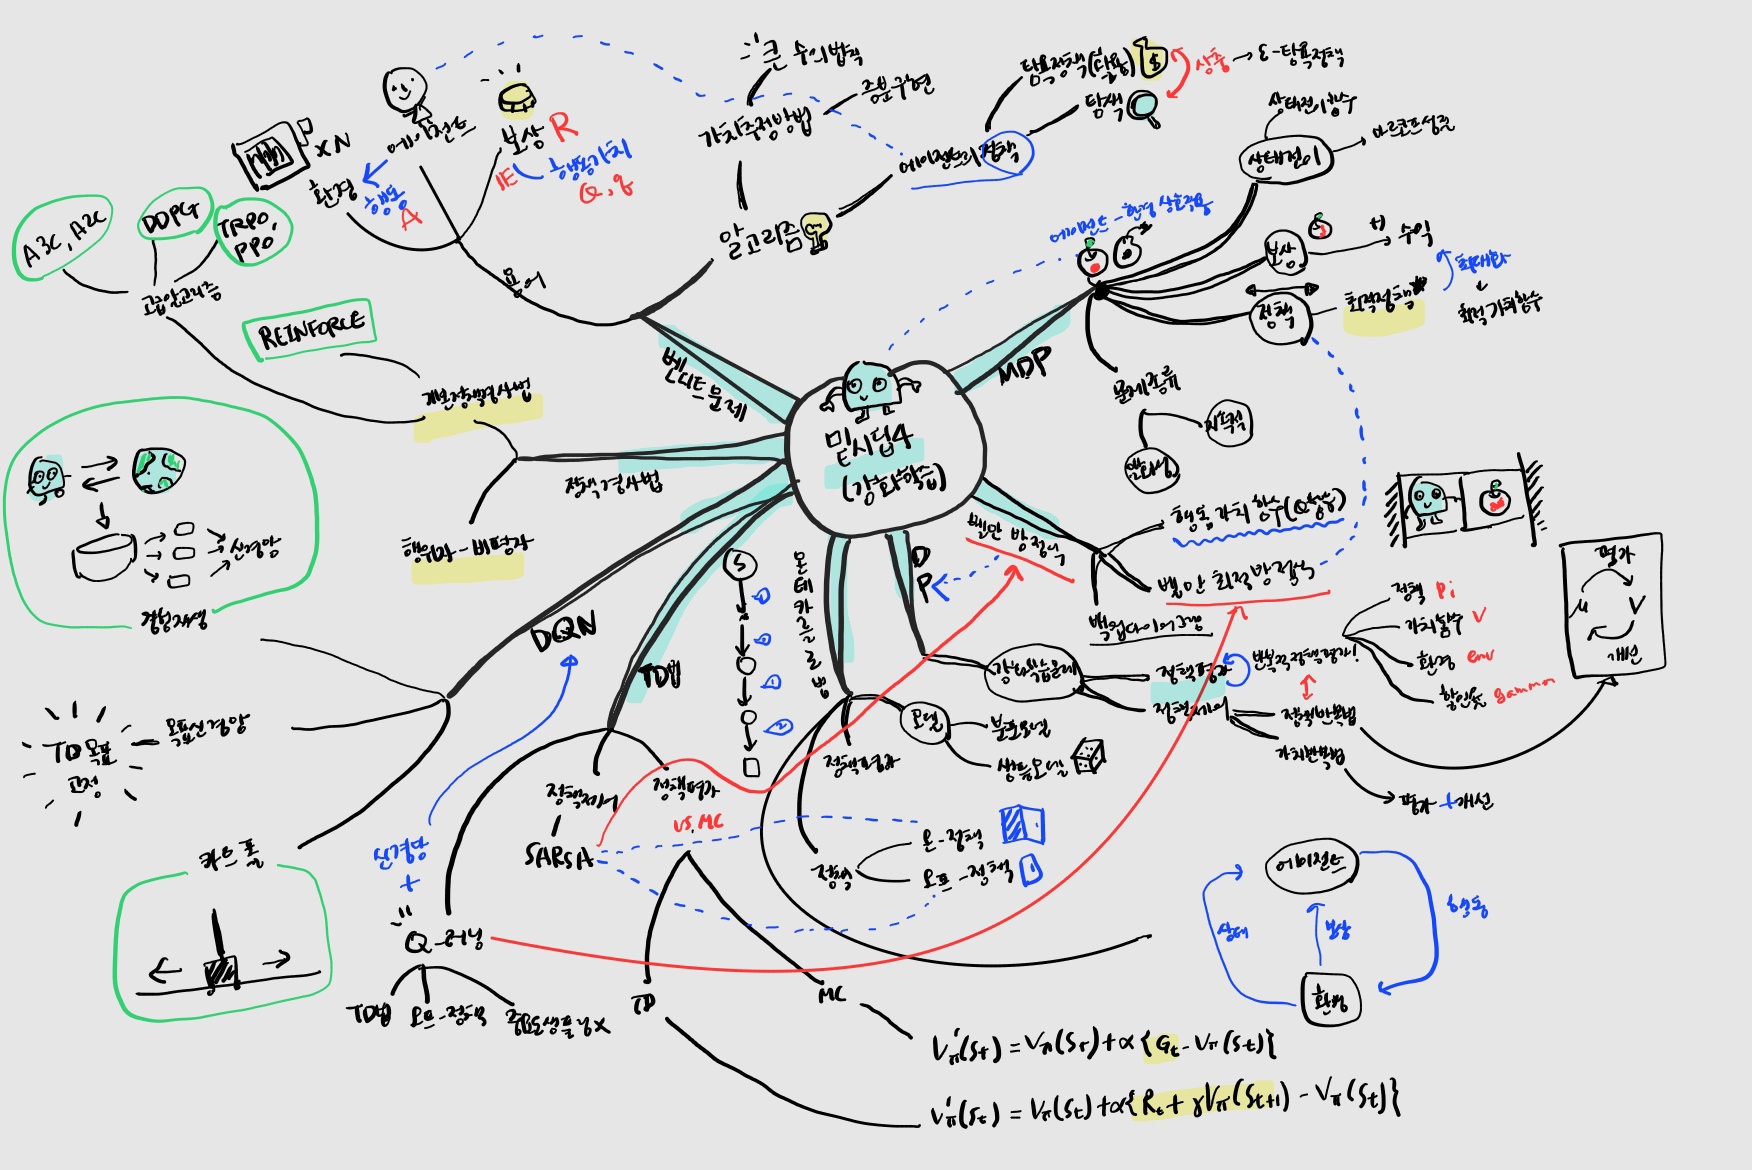 큰 수의 법칙
증분 구현
가치추정방법
탐욕정책(활용)
상충
ε-탐욕정책
탐색
에이전트의 정책
에이전트
보상 R
xN
환경
행동
A
E
행동가치
Q, q
알고리즘
용어
밴디트 문제
상태전이함수
상태전이
마르코프 성질
에이전트-환경 상호작용
보상
수익
최대화
정책
최적정책
최적가치함수
MDP
문제종류
지속적
일회성
A3C, A2C
DDPG
TRPO,
PPO
고급알고리즘
REINFORCE
정책경사법
행위자-비평자
밑시딥4
(강화학습)
신경망
경험재생
DQN
TD목표
고정
목표신경망
카트 폴
신경망
+
Q-러닝
TD법
오프-정책
중요도샘플링x
TD법
정책제어
정책평가
SARSA
VS.MC
TD
MC
S
몬테카를로법
모델
분포모델
샘플모델
정책평가
정책
온-정책
오프-정책
DP
벨만 방정식
행동가치 함수(Q함수)
벨만 최적 방정식
백업다이어그램
강화학습문제
정책평가
반복적정책평가!
정책제어
정책반복법
가치반복법
평가+개선
정책 Pi
가치함수 V
환경 env
할인율 gamma
평가
μ
V
개선
에이전트
상태
보상
행동
환경
V'π(St) = Vπ(St)+α{Gt-Vπ(St)}
V'π(St) = Vπ(St)+α{Rt+γVπ(St+1)-Vπ(St)}